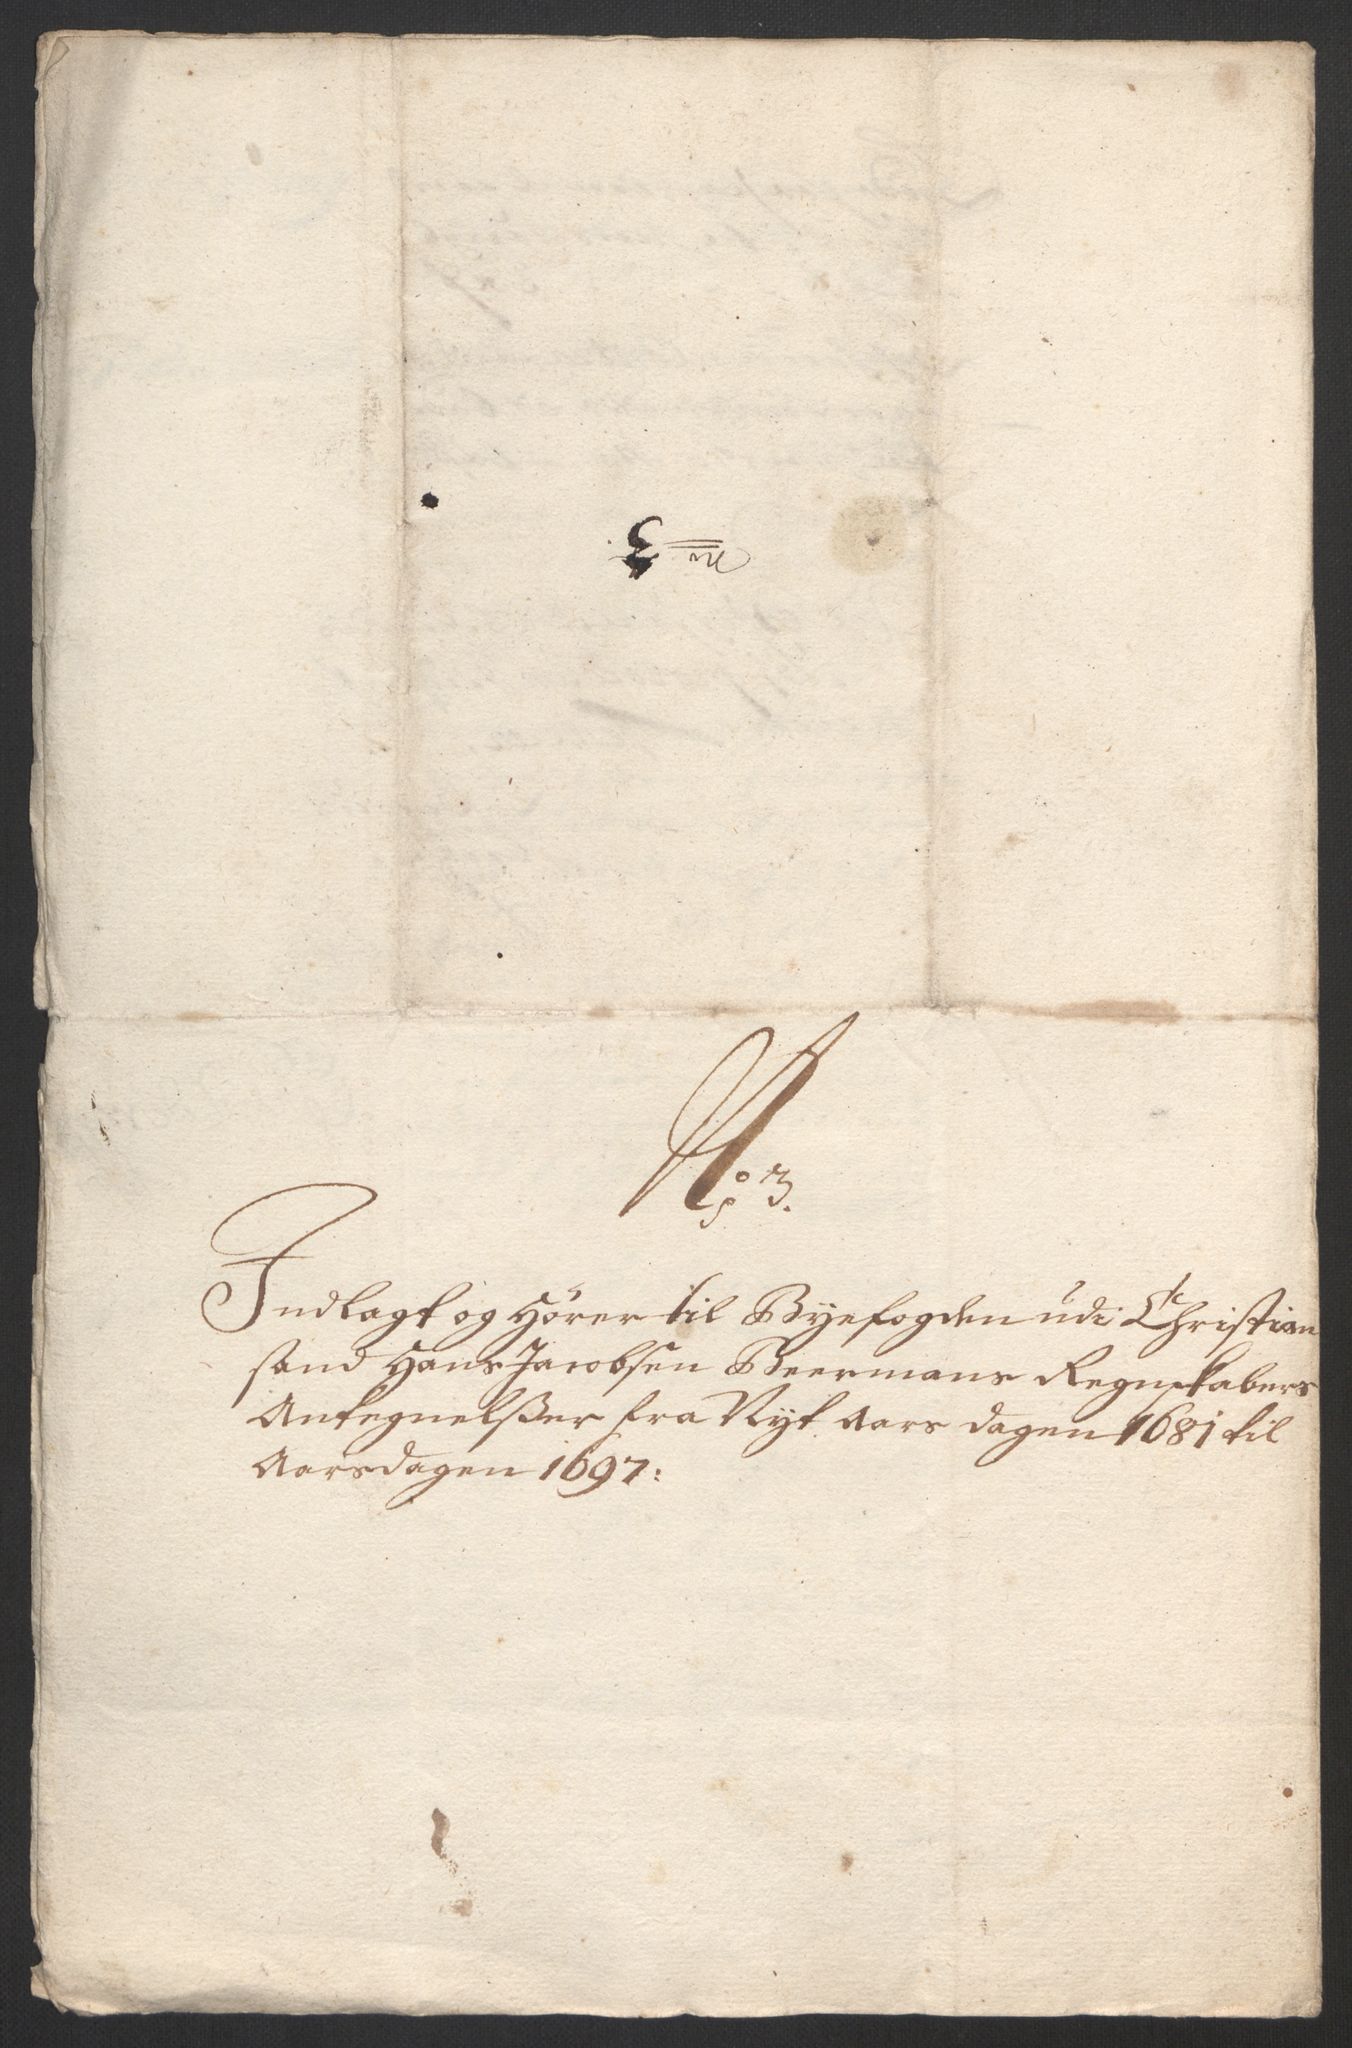 No 3.
Indlagt og hører til Byefogden udi Christian
sand Hans Jacobsen Beermans Regnskabers
Antegnelßer fra Nyt Aars dagen 1681 til
Aarsdagen 1697: